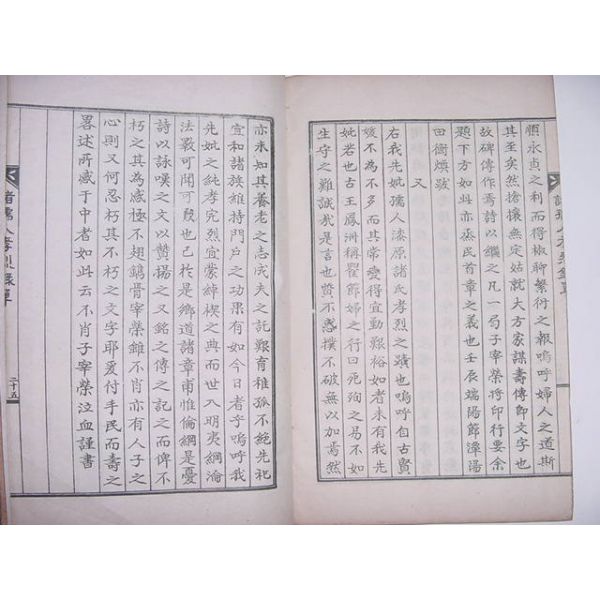 恒永貞之利而得椒聊繁衍之報嗚呼婦人之道斯
其至矣然搶攘無定姑就大方家謀壽傳即文字也
故碑傳作焉詩以繼之凡一局子宰榮將印行要余
題下方如此亦烝民首章之義也壬辰端陽節漳陽
田衡燠跋
又
右我先妣孺人漆原諸氏孝烈之蹟也嗚呼自古賢
媛不為不多而其常變得宜勤艱裕如者未有我先
妣若也古王鳳洲稱瞿節婦之行曰死殉之易不如
生守之難誠哉是言也贊不惑撲不破無以加焉然
亦未知其養老之志成夫之託艱育稚孤不絕先祀
宣和諸族維持門戶之功果有如今日者乎嗚呼我
先妣之純孝完烈宜蒙綽楔之典而世入明夷綱淪
法斁可聞可裂也已於是鄉道諸章甫惟倫綱是憂
詩以詠嘆之文以贊揚之又銘之傳之記之而俾不
朽之其為感極不翅鏤骨宰榮雖不肖亦有人子之
心則又何忍朽其不朽之文字耶爰付手民而壽之
畧述所感于中者如此云不肖子宰榮泣血謹書
諸孺人孝烈錄單
二十五